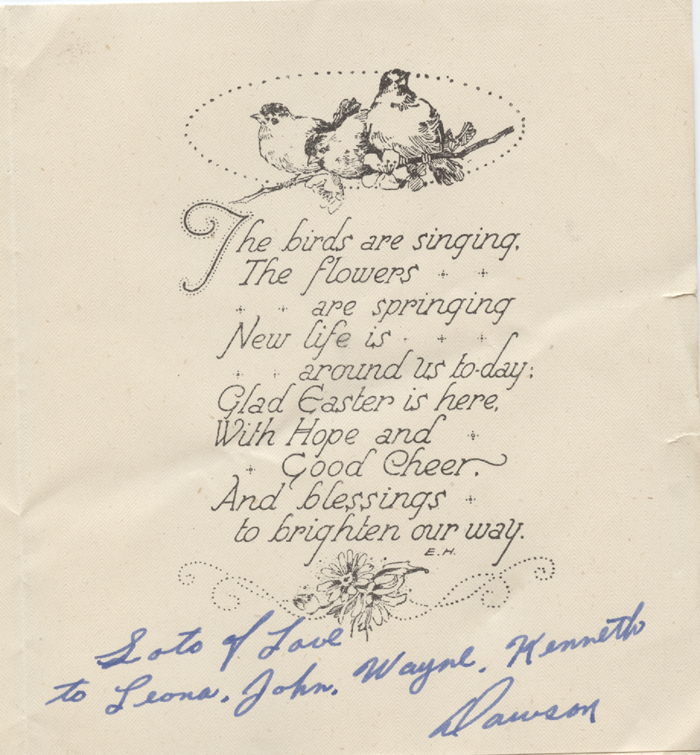 The birds are singing,
The flowers
are springing
New life is
around us to-day;
Glad Easter is here,
With Hope and
Good Cheer.
And blessings
to brighten our way.
E.H.
Lots of Love
to Leona, John, Wayne, Kenneth
Dawson